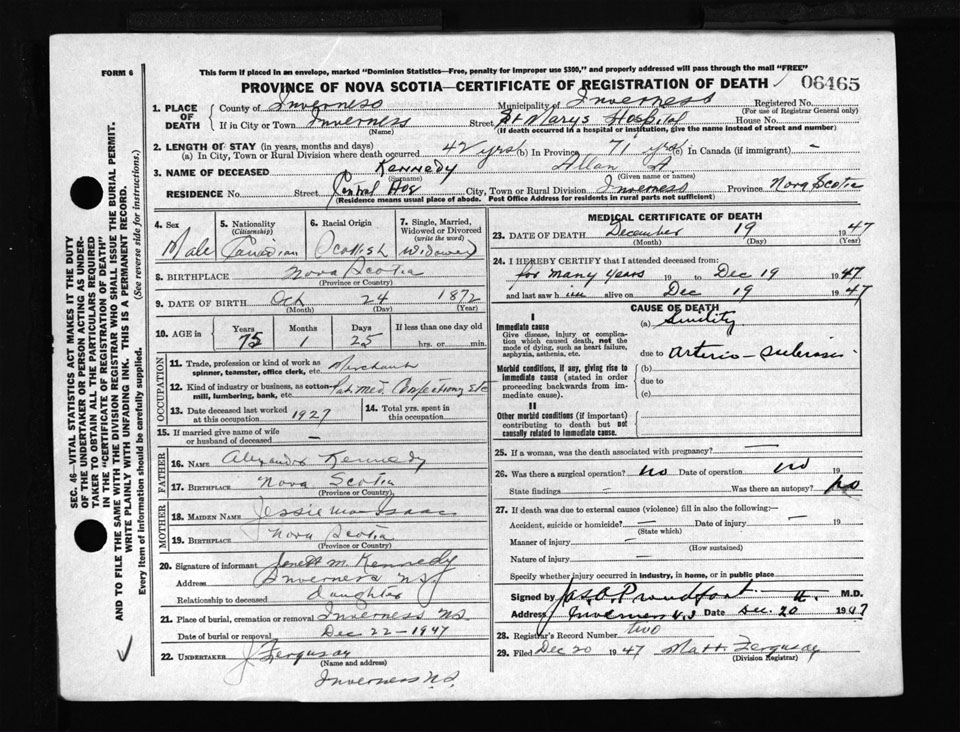 This form if placed in an envelope, marked "Dominion Statistics—Free, penalty for improper use $300," and properly addressed will pass through the mail "FREE"
FORM 6
PROVINCE OF NOVA SCOTIA—CERTIFICATE OF REGISTRATION OF DEATH 06465
1. PLACE OF DEATH
County of Inverness Municipality of Inverness Registered No.
(For use of Registrar General only)
If in City or Town Inverness Street St Marys Hospital House No.
(Name) (If death occurred in a hospital or institution, give the name instead of street and number)
2. LENGTH OF STAY (in years, months and days)
(a) In City, Town or Rural Division where death occurred 42 yrs (b) In Province 71 yrs (c) In Canada (if immigrant) -
3. NAME OF DECEASED Kennedy Allan A.
(Surname) (Given name or names)
RESIDENCE No. Street Central Ave City, Town or Rural Division Inverness Province Nova Scotia
(Residence means usual place of abode. Post Office Address for residents in rural parts not sufficient)
4. Sex
Male
5. Nationality
(Citizenship)
Canadian
6. Racial Origin
Scottish
7. Single, Married, Widowed or Divorced
(write the word)
Widower
8. BIRTHPLACE Nova Scotia
(Province or Country)
9. DATE OF BIRTH Oct 24 1872
(Month) (Day) (Year)
10. AGE in Years Months Days If less than one day old
75 1 25 hrs. or min.
OCCUPATION
11. Trade, profession or kind of work as spinner, teamster, office clerk, etc. Merchant
12. Kind of industry or business, as cotton-mill, lumbering, bank, etc. Pat. Med. Confectionery Etc
13. Date deceased last worked at this occupation 1927
14. Total yrs. spent in this occupation
15. If married give name of wife or husband of deceased —
FATHER
16. NAME Alexander Kennedy
17. BIRTHPLACE Nova Scotia
(Province or Country)
MOTHER
18. MAIDEN NAME Jessie MacIsaac
19. BIRTHPLACE Nova Scotia
(Province or Country)
20. Signature of informant M. Kennedy
Address Inverness NS
Relationship to deceased daughter
21. Place of burial, cremation or removal Inverness N.S.
Date of burial or removal Dec 22 - 1947
22. UNDERTAKER J Ferguson
(Name and address)
Inverness N.S.
MEDICAL CERTIFICATE OF DEATH
23. DATE OF DEATH December 19 1947
(Month) (Day) (Year)
24. I HEREBY CERTIFY that I attended deceased from:
for many years 19 to Dec 19 1947
and last saw h im alive on Dec 19 1947
CAUSE OF DEATH
I
Immediate cause
Give disease, injury or complication which caused death, not the mode of dying, such as heart failure, asphyxia, asthenia, etc.
(a) Senility
due to arterio-sclerosis
Morbid conditions, if any, giving rise to immediate cause (stated in order proceeding backwards from immediate cause).
(b)
due to
(c)
II
Other morbid conditions (if important) contributing to death but not causally related to immediate cause.
25. If a woman, was the death associated with pregnancy? —
26. Was there a surgical operation? no Date of operation no 19
State findings – Was there an autopsy? no
27. If death was due to external causes (violence) fill in also the following:—
Accident, suicide or homicide? — Date of injury — 19
(State which)
Manner of injury —
(How sustained)
Nature of injury —
Specify whether injury occurred in industry, in home, or in public place
Signed by Jas. A. Proudfoot M.D.
Address Inverness N.S Date Dec. 20 1947
28. Registrar's Record Number two
29. Filed Dec 20 1947 Matt. Ferguson
(Division Registrar)
SEC. 46—VITAL STATISTICS ACT MAKES IT THE DUTY
OF THE UNDERTAKER OR PERSON ACTING AS UNDERTAKER
TO OBTAIN ALL THE PARTICULARS REQUIRED
IN THE "CERTIFICATE OF REGISTRATION OF DEATH"
AND TO FILE THE SAME WITH THE DIVISION REGISTRAR WHO SHALL ISSUE THE BURIAL PERMIT.
WRITE PLAINLY WITH UNFADING INK. THIS IS A PERMANENT RECORD.
Every item of information should be carefully supplied. (See reverse side for instructions.)